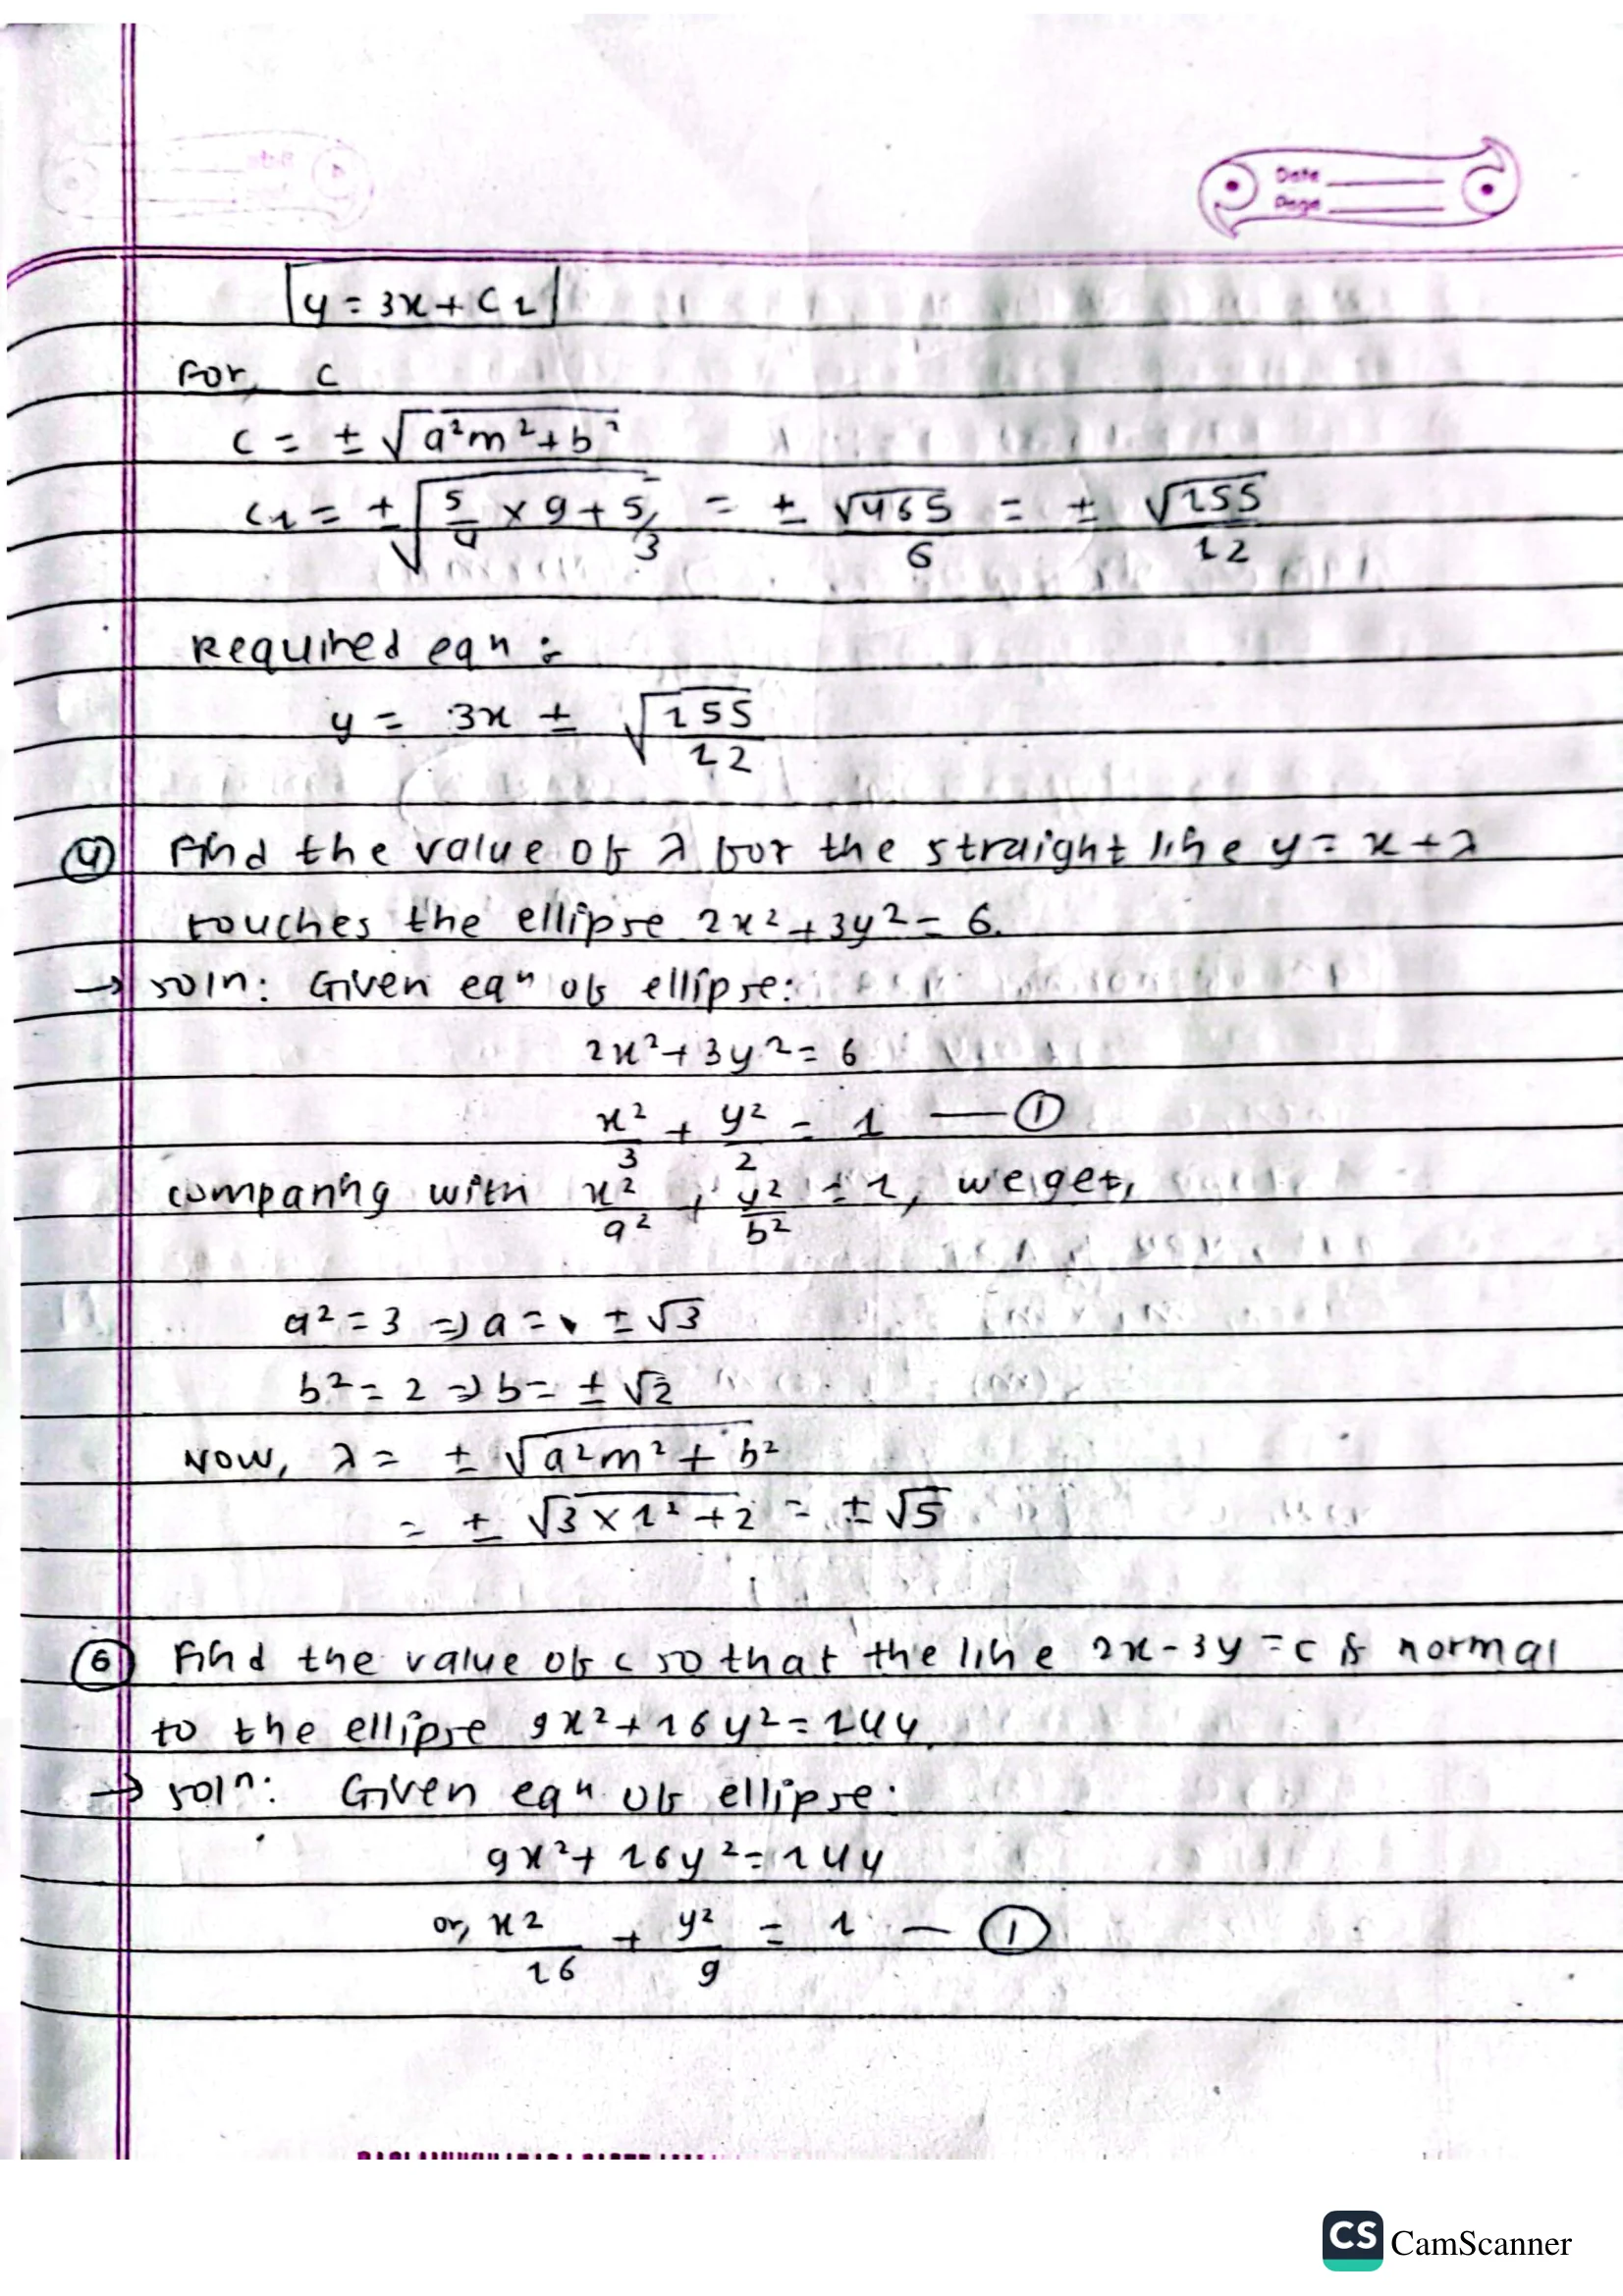 Date
Page
y = 3x + c1
For, c
c = ± √(a²m² + b²)
c1 = ± √(5/4 × 9 + 5/3) = ± √465/6 = ± √155/12
Required eqn :
y = 3x ± √(155/12)
(4) Find the value of λ for the straight line y = x + λ
touches the ellipse 2x² + 3y² = 6.
→ soln: Given eqn of ellipse:
2x² + 3y² = 6
x²/3 + y²/2 = 1 — (1)
comparing with x²/a² + y²/b² = 1, we get,
a² = 3 => a = ± √3
b² = 2 => b = ± √2
Now, λ = ± √(a²m² + b²)
= ± √(3 × 1² + 2) = ± √5
(6) Find the value of c so that the line 2x - 3y = c is normal
to the ellipse 9x² + 16y² = 144.
→ soln: Given eqn of ellipse:
9x² + 16y² = 144
or, x²/16 + y²/9 = 1 — (1)
CS CamScanner